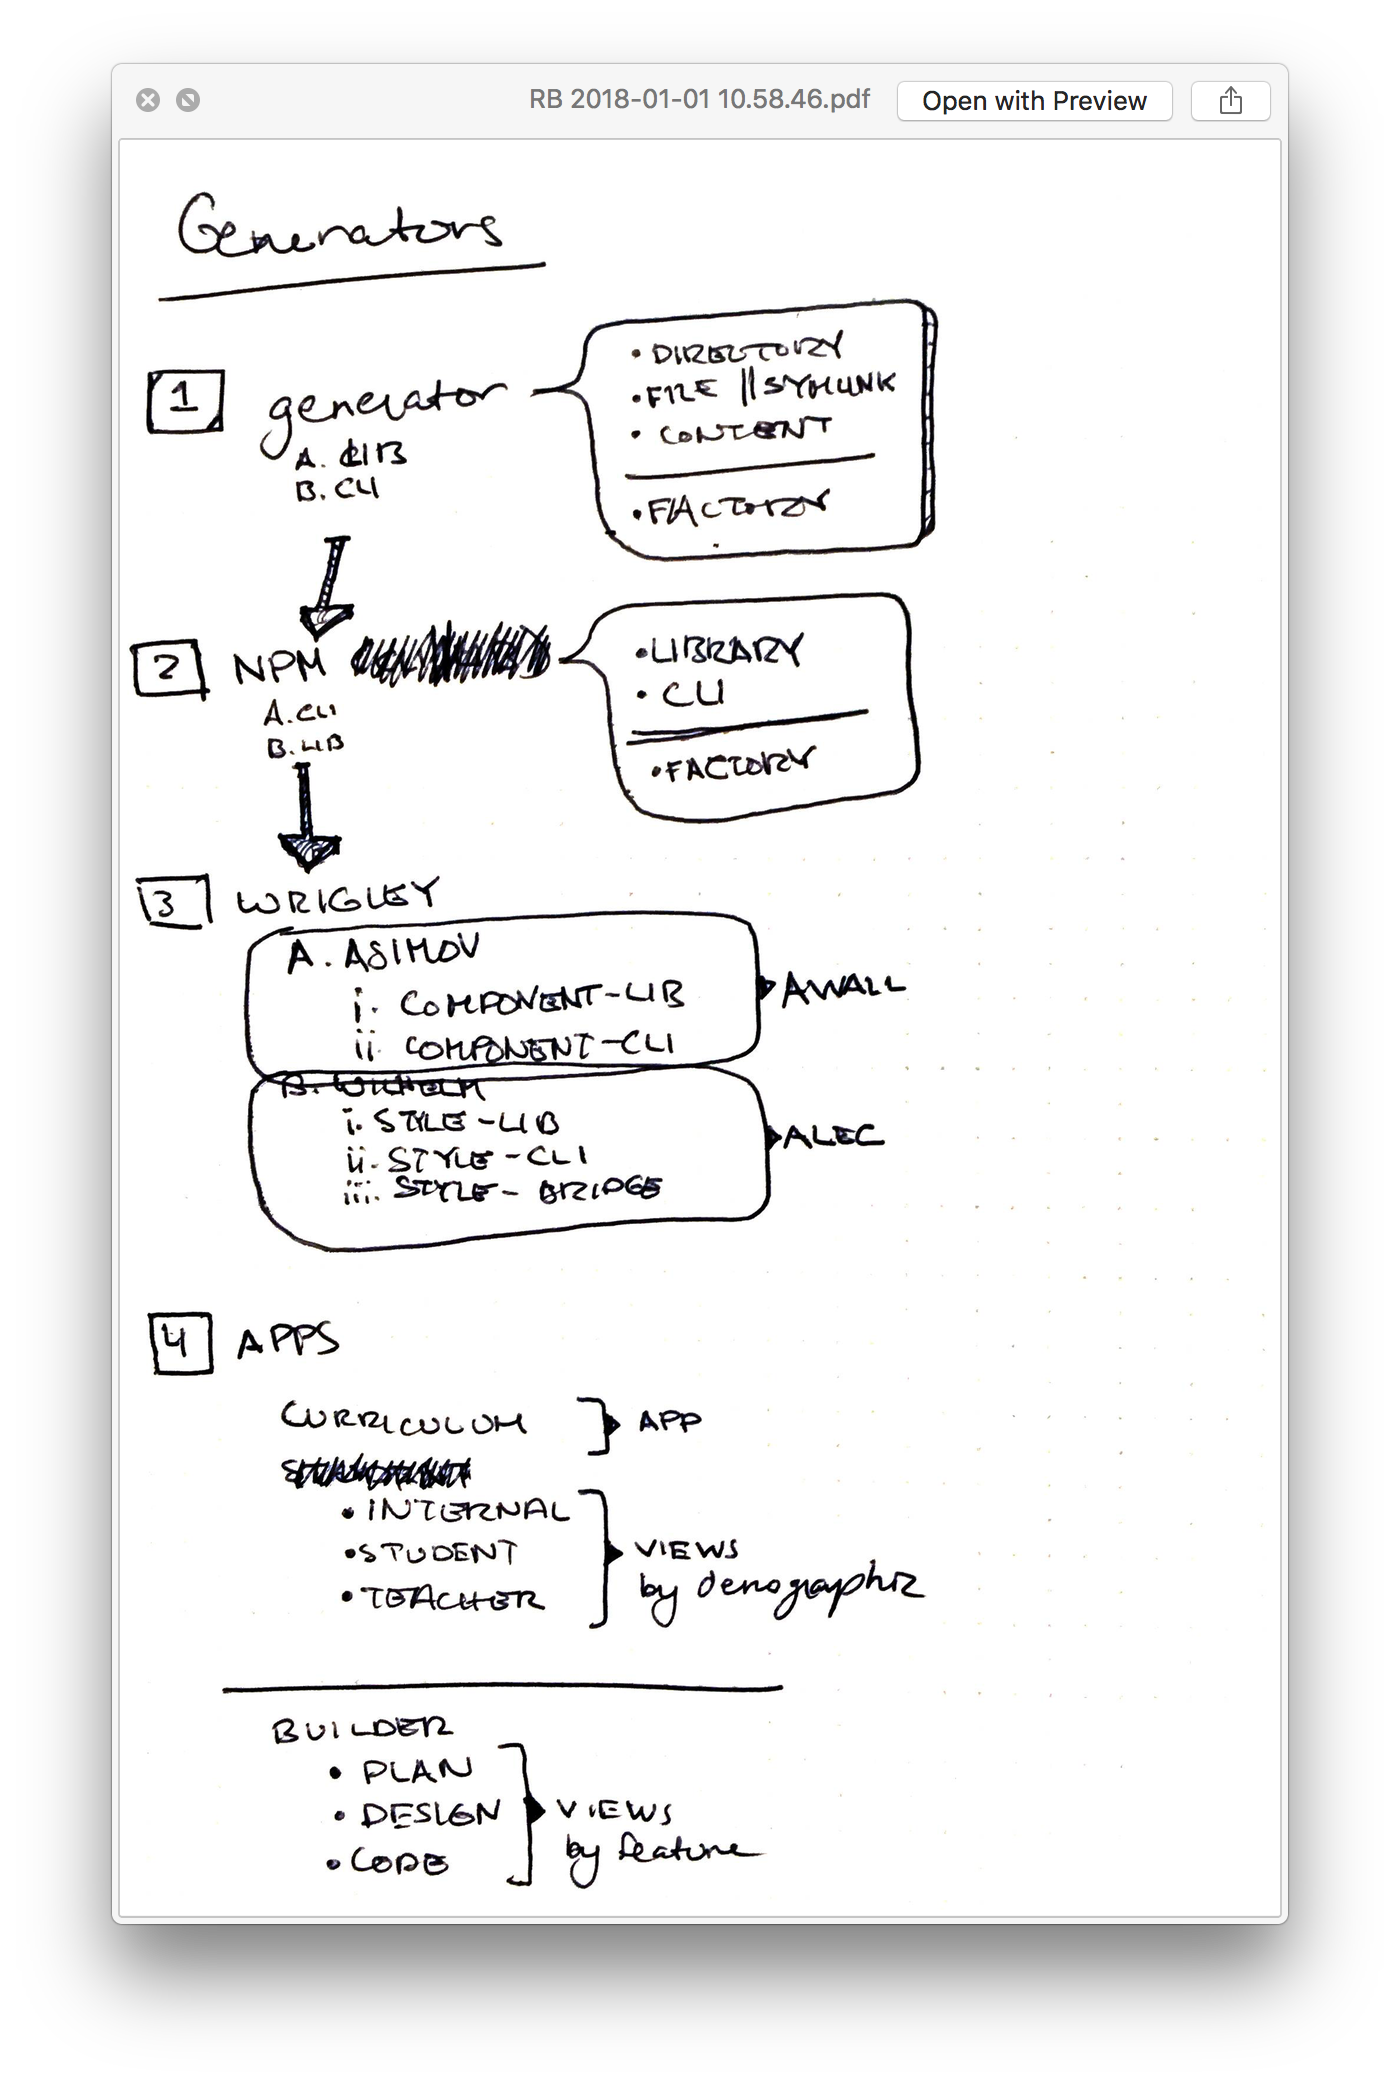 RB 2018-01-01 10.58.46.pdf
Open with Preview
Generators
1 generator
A. LIB
B. CLI
• DIRECTORY
• FILE || SYMLINK
• CONTENT
• FACTORY
2 NPM
A. CLI
B. LIB
• LIBRARY
• CLI
• FACTORY
3 WRIGLEY
A. ASIMOV
i. COMPONENT-LIB
ii. COMPONENT-CLI
AWALL
B. WILHELM
i. STYLE-LIB
ii. STYLE-CLI
iii. STYLE-BRIDGE
ALEC
4 APPS
CURRICULUM
APP
• INTERNAL
• STUDENT
• TEACHER
VIEWS
by demographic
BUILDER
• PLAN
• DESIGN
• CODE
VIEWS
by feature